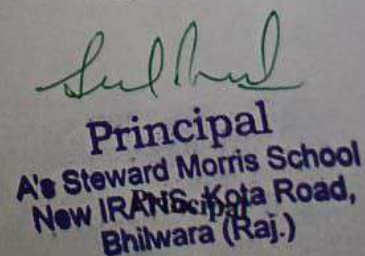 Principal
A's Steward Morris School
New IRANS, Kota Road,
Principal
Bhilwara (Raj.)